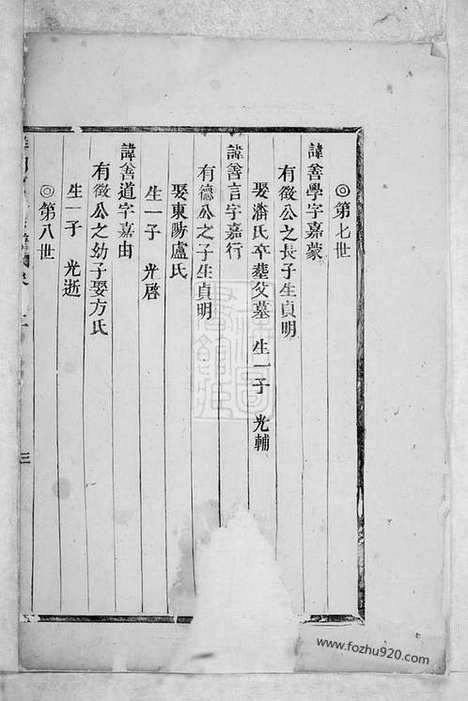 ◎第七世
諱善學字嘉蒙
有徵公之長子生貞明
娶潘氏卒葬父墓 生一子 光輔
諱善言字嘉行
有德公之子生貞明
娶東陽盧氏
生一子 光啓
諱善道字嘉由
有徵公之幼子娶方氏
生一子 光逝
◎第八世
三
www.fozhu920.com